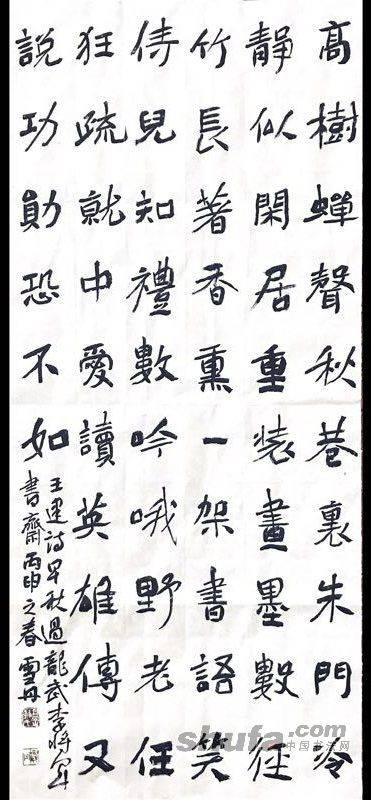 高樹蟬聲秋巷裏朱門冷
靜似閑居重裝畫墨數徑
竹長著香熏一架書語笑
侍兒知禮數吟哦野老任
狂疏就中愛讀英雄傳又
說功勛恐不如
王建詩早秋過龍武李將軍
書齋丙申之春雪丹
shufa.com
中国书法网